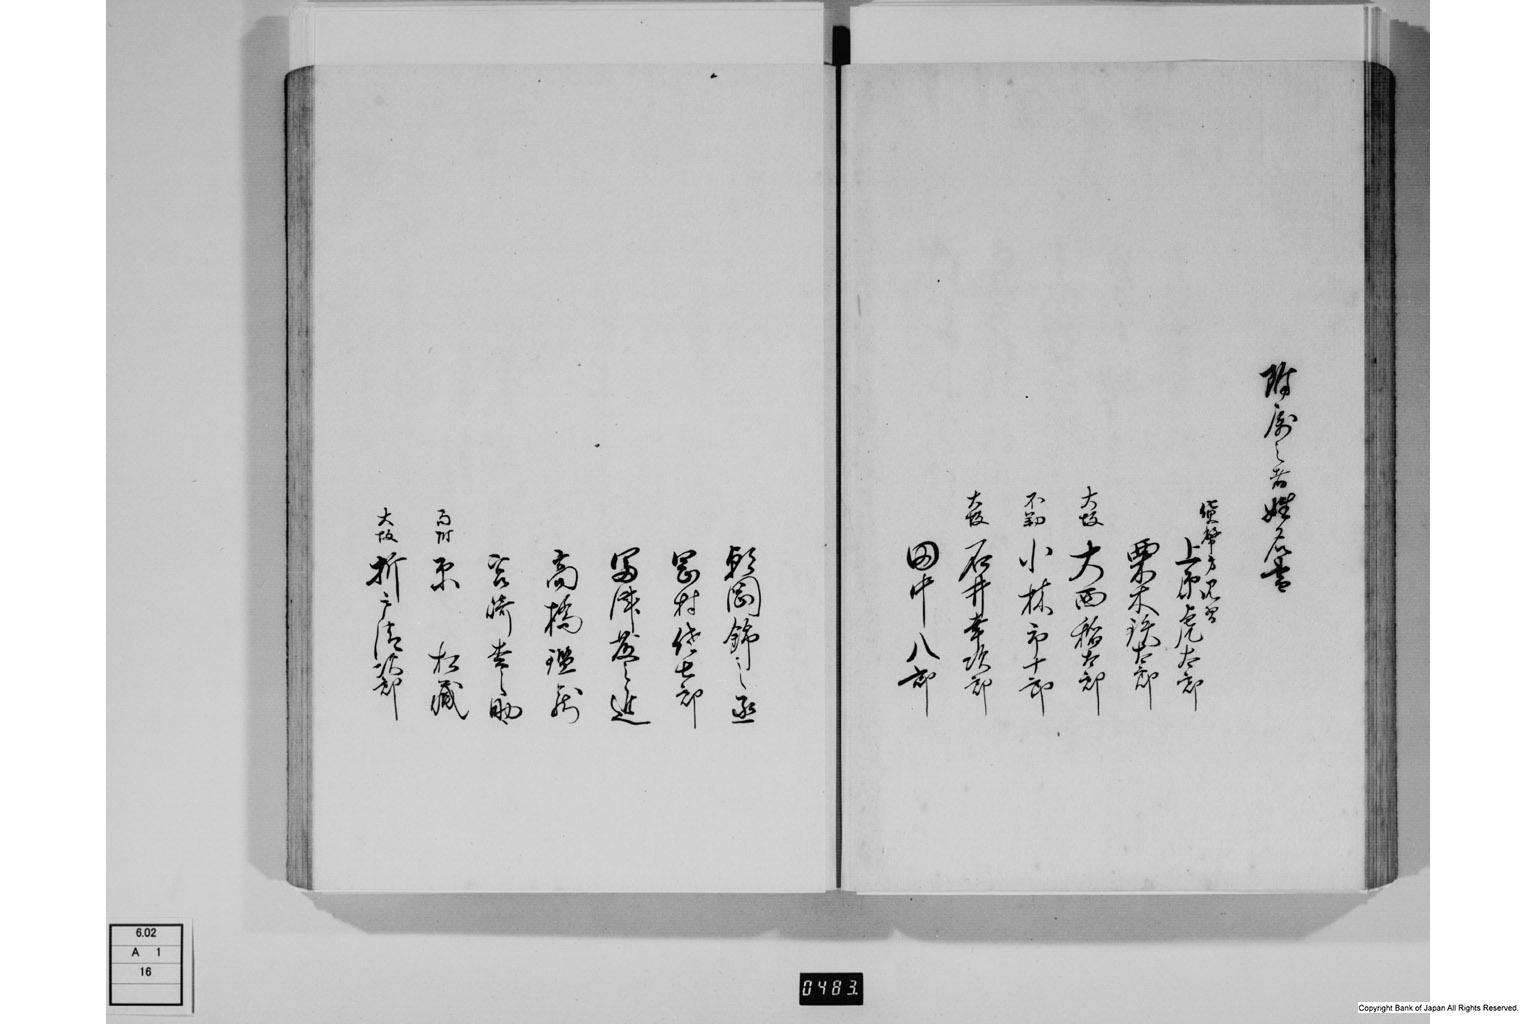 附属之者姓名書
貨幣方見習
上原虎太郎
栗木鉄太郎
大坂 大西稲太郎
不勤 小林市十郎
大坂 石井幸次郎
田中八郎
朝岡錦之丞
岡村伝七郎
富沢 之進
高橋 蔵
谷崎 之助
原 松蔵
大坂 折戸清次郎
6.02
A 1
16
0483.
Copyright Bank of Japan All Rights Reserved.